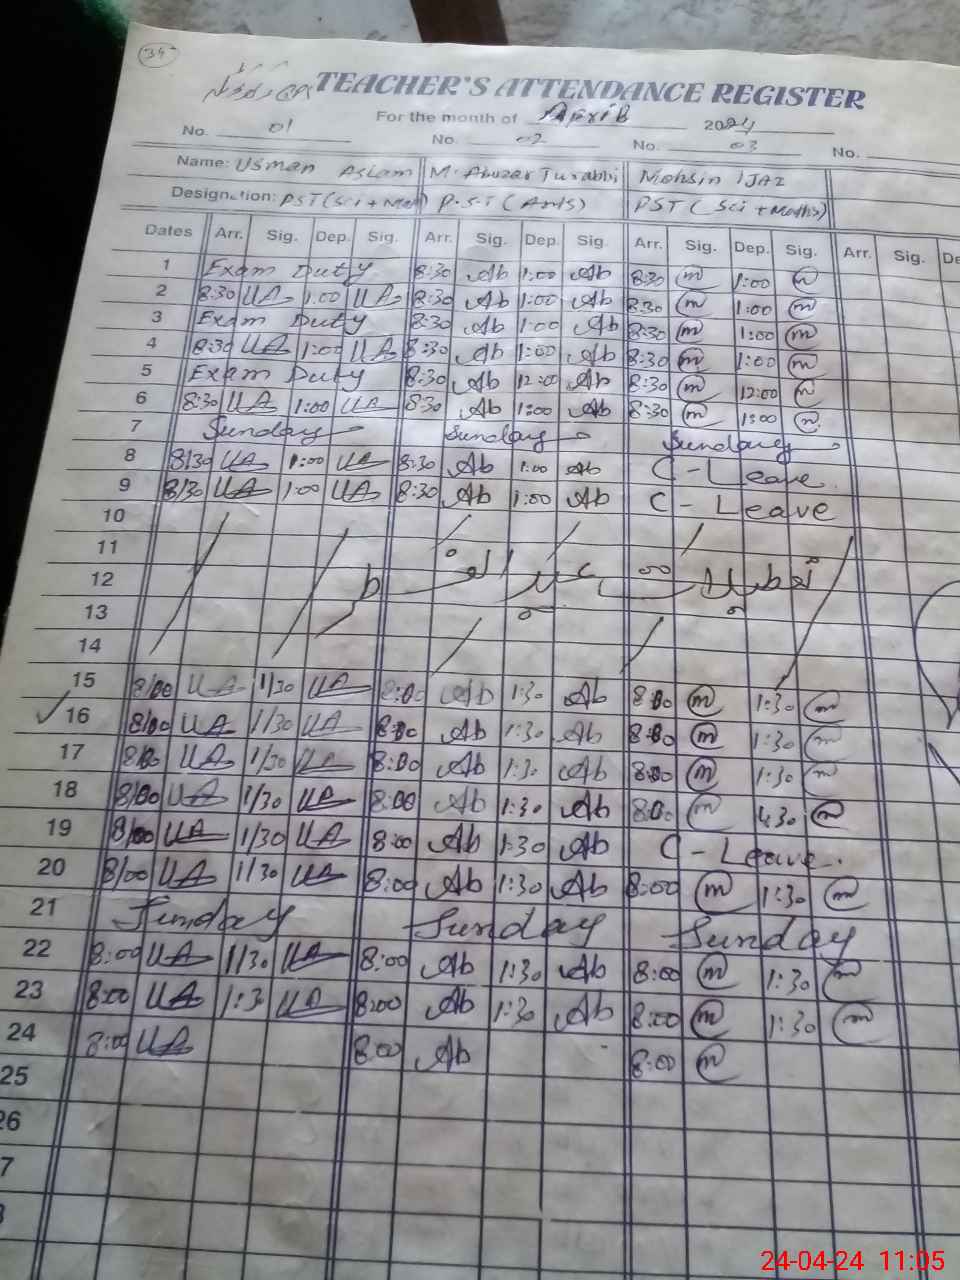 34
TEACHER'S ATTENDANCE REGISTER
For the month of April 2024
No. 01 No. 02 No. 03 No.
Name: Usman Aslam M. Abuzar Turabbi Mohsin IJAZ
Designation: PST (Sci + Math) P.S.T (Arts) PST (Sci + Maths)
Dates Arr. Sig. Dep. Sig. Arr. Sig. Dep. Sig. Arr. Sig. Dep. Sig. Arr. Sig. De
1 Exam Duty 8:30 Ab 1:00 Ab 8:30 m 1:00 m
2 8:30 UA 1:00 UA 8:30 Ab 1:00 Ab 8:30 m 1:00 m
3 Exam Duty 8:30 Ab 1:00 Ab 8:30 m 1:00 m
4 8:30 UA 1:00 UA 8:30 Ab 1:00 Ab 8:30 m 1:00 m
5 Exam Duty 8:30 Ab 12:00 Ab 8:30 m 12:00 m
6 8:30 UA 1:00 UA 8:30 Ab 1:00 Ab 8:30 m 1:00 m
7 Sunday Sunday Sunday
8 8/30 UA 1:00 UA 8:30 Ab 1:00 Ab C - Leave
9 8/30 UA 1:00 UA 8:30 Ab 1:00 Ab C - Leave
10
11
12 تعطیلات عید الفطر
13
14
15 8/00 UA 1/30 UA 8:00 Ab 1:30 Ab 8:00 m 1:30 m
16 8/00 UA 1/30 UA 8:00 Ab 1:30 Ab 8:00 m 1:30 m
17 8/00 UA 1/30 UA 8:00 Ab 1:30 Ab 8:00 m 1:30 m
18 8/00 UA 1/30 UA 8:00 Ab 1:30 Ab 8:00 m 1:30 m
19 8/00 UA 1/30 UA 8:00 Ab 1:30 Ab C - Leave.
20 8/00 UA 1/30 UA 8:00 Ab 1:30 Ab 8:00 m 1:30 m
21 Sunday Sunday Sunday
22 8:00 UA 1/30 UA 8:00 Ab 1:30 Ab 8:00 m 1:30 m
23 8:00 UA 1:3 UA 8:00 Ab 1:30 Ab 8:00 m 1:30 m
24 8:00 UA 8:00 Ab 8:00 m
25
26
7
24-04-24 11:05